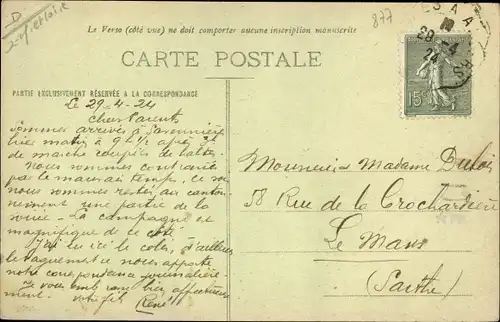 D
Le Verso (côté vue) ne doit comporter aucune inscription manuscrite
877
CARTE POSTALE
28-4
24
15c
PARTIE EXCLUSIVEMENT RÉSERVÉE A LA CORRESPONDANCE
Le 29-4-24
Chers Parents
Sommes arrivés à Savennières
hier matin à 9h ½ après
de marche coupés de haltes
Nous sommes contrariés
par le mauvais temps, ce
nous sommes restés au canton-
nement une partie de la
La campagne est
magnifique de ce côté.
J'ai reçu ici le colis, d'ailleurs
le vaguemestre nous apporte
notre correspondance journalière.
Je vous embrasse bien affectueuse-
ment. votre fils René
Monsieur & Madame Dubois
58 Rue de la Crochardière
Le Mans
(Sarthe)